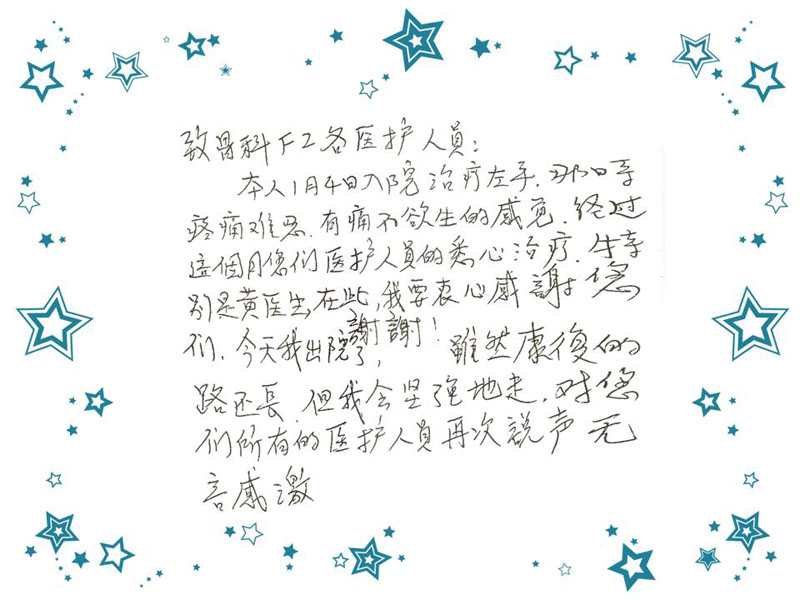 致骨科F2各医护人員：
本人1月4日入院治疗左手．那日手
疼痛难忍．有痛不欲生的感觉．经过
這個月您们医护人員的悉心治疗．特
别是黄医生，在此，我要衷心感謝您
们．謝謝！
今天我出院了， 雖然康復的
路还長．但我会坚强地走．对您
们所有的医护人員再次説声无
言感激